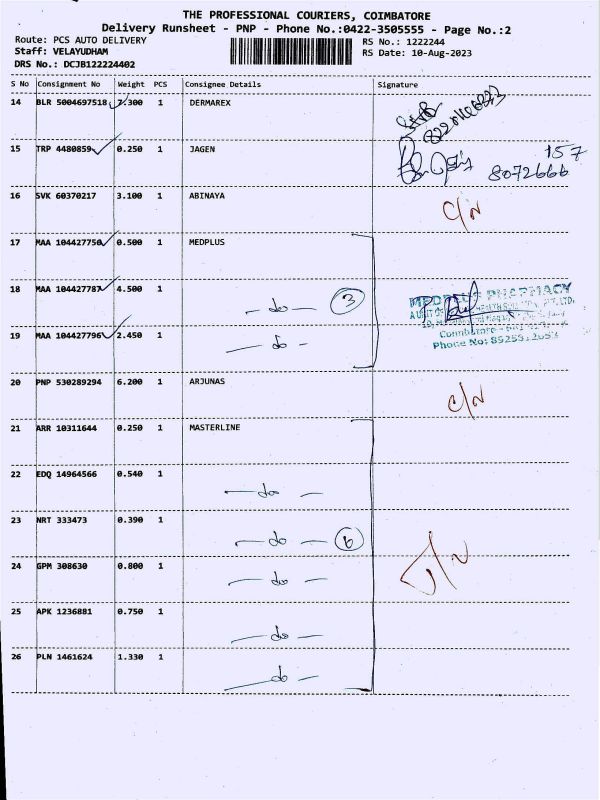 THE PROFESSIONAL COURIERS, COIMBATORE
Delivery Runsheet - PNP - Phone No.:0422-3505555 - Page No.:2
Route: PCS AUTO DELIVERY RS No.: 1222244
Staff: VELAYUDHAM RS Date: 10-Aug-2023
DRS No.: DCJB122224402
S No Consignment No Weight PCS Consignee Details Signature
14 BLR 5004697518 7.300 1 DERMAREX
15 TRP 4480859 0.250 1 JAGEN
157
8072666
16 SVK 60370217 3.100 1 ABINAYA C/N
17 MAA 104427750 0.500 1 MEDPLUS
18 MAA 104427787 4.500 1
— do — 3
MEDPLUS PHARMACY
19 MAA 104427796 2.450 1
— do —
Coimbatore
Phone No:
20 PNP 530289294 6.200 1 ARJUNAS C/N
21 ARR 10311644 0.250 1 MASTERLINE
22 EDQ 14964566 0.540 1
— do —
23 NRT 333473 0.390 1
— do — 6
24 GPM 308630 0.800 1
— do —
25 APK 1236881 0.750 1
— do —
26 PLN 1461624 1.330 1
— do —